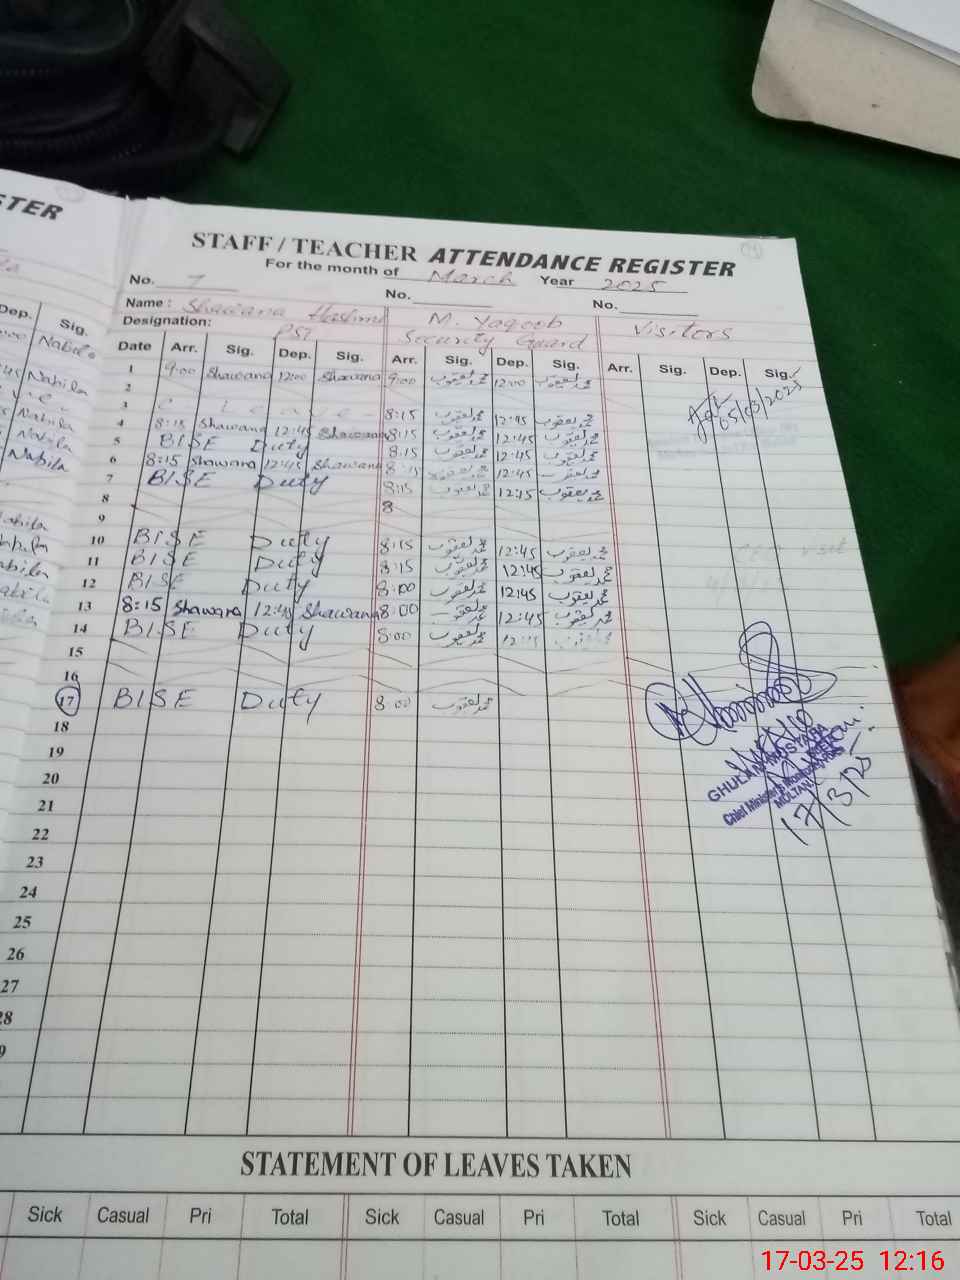 STER
STAFF / TEACHER ATTENDANCE REGISTER
For the month of March Year 2025
No. 7 No. No.
Name: Shawana Hashmi M. Yaqoob Visitors
Designation: PST Security Guard
Dep. Sig. Date Arr. Sig. Dep. Sig. Arr. Sig. Dep. Sig. Arr. Sig. Dep. Sig.
Nabila 1 9:00 Shawana 12:00 Shawana 9:00 محمد یعقوب 12:00 محمد یعقوب
Nabila 2
3 C Leave 8:15 محمد یعقوب 12:45 محمد یعقوب 05/03/2025
Nabila 4 8:15 Shawana 12:45 Shawana 8:15 محمد یعقوب 12:45 محمد یعقوب
Nabila 5 BISE Duty 8:15 محمد یعقوب 12:45 محمد یعقوب
Nabila 6 8:15 Shawana 12:45 Shawana 8:15 محمد یعقوب 12:45 محمد یعقوب
7 BISE Duty 8:15 محمد یعقوب 12:45 محمد یعقوب
8 8
9
Nabila 10 BISE Duty 8:15 محمد یعقوب 12:45 محمد یعقوب
Nabila 11 BISE Duty 8:15 محمد یعقوب 12:45 محمد یعقوب
Nabila 12 BISE Duty 8:00 محمد یعقوب 12:45 محمد یعقوب
Nabila 13 8:15 Shawana 12:45 Shawana 8:00 محمد یعقوب 12:45 محمد یعقوب
14 BISE Duty 8:00 محمد یعقوب 12:45 محمد یعقوب
15
16
17 BISE Duty 8:00 محمد یعقوب
18
GHULAM MUSTAFA
Chief Minister's Monitoring
MULTAN
17/3/25
19
20
21
22
23
24
25
26
27
28
9
STATEMENT OF LEAVES TAKEN
Sick Casual Pri Total Sick Casual Pri Total Sick Casual Pri Total
17-03-25 12:16